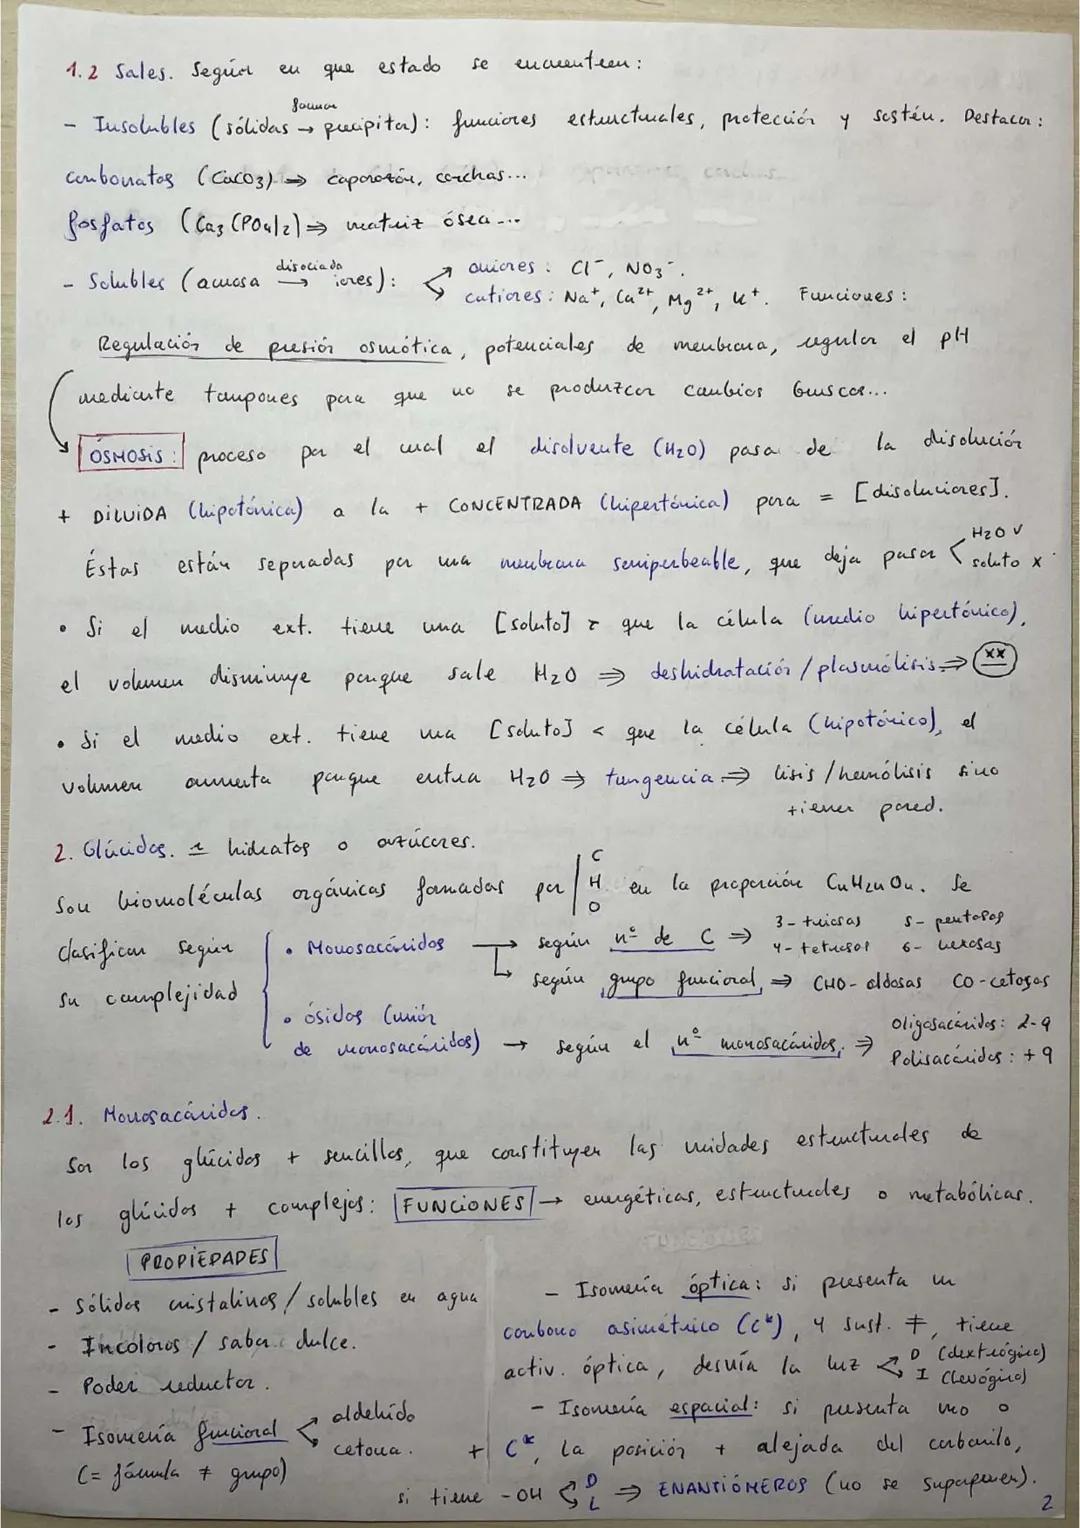 1.2 Sales. Según en que estado se encuentren:
- Insolubles (sólidas forman → precipitar): funciones estructurales, protección y sostén. Destacar:
carbonatos (CaCO3) ⇒ caparazón, conchas...
fosfatos (Ca3(PO4)2) ⇒ matriz ósea...
- Solubles (acuosa disociada → iones): aniones: Cl⁻, NO3⁻.
cationes: Na⁺, Ca²⁺, Mg²⁺, K⁺. Funciones:
Regulación de presión osmótica, potenciales de membrana, regular el pH
mediante tampones para que no se produzcan cambios bruscos...
ÓSMOSIS: proceso por el cual el disolvente (H2O) pasa de la disolución
+ DILUIDA (hipotónica) a la + CONCENTRADA (hipertónica) para = [disoluciones].
Éstas están separadas por una membrana semiperbeable, que deja pasar H2O ✓
soluto x
• Si el medio ext. tiene una [soluto] > que la célula (medio hipertónico),
el volumen disminuye porque sale H2O ⇒ deshidratación / plasmólisis ⇒ xx
• Si el medio ext. tiene una [soluto] < que la célula (hipotónico), el
volumen aumenta porque entra H2O ⇒ turgencia ⇒ lisis / hemólisis si no
tienen pared.
2. Glúcidos. hidratos o azúcares.
Son biomoléculas orgánicas formadas por C H O en la proporción CnH2nOn. Se
clasifican según su complejidad
• Monosacáridos → según nº de C ⇒ 3- triosas 5- pentosas
4- tetrosas 6- hexosas
según grupo funcional ⇒ CHO- aldosas CO- cetosas
• ósidos (unión de monosacáridos) → según el nº monosacáridos ⇒ Oligosacáridos: 2-9
Polisacáridos: + 9
2.1. Monosacáridos.
Son los glúcidos + sencillos, que constituyen las unidades estructurales de
los glúcidos + complejos: FUNCIONES → energéticas, estructurales o metabólicas.
PROPIEDADES
- Sólidos cristalinos / solubles en agua
- Incoloros / sabor dulce.
- Poder reductor.
- Isomería funcional aldehído
cetona.
(= fórmula ≠ grupo)
- Isomería óptica: si presenta un
carbono asimétrico (C*), 4 sust. ≠, tiene
activ. óptica, desvía la luz D (dextrógiro)
I (levógiro)
- Isomería espacial: si presenta uno o
+ C*, la posición + alejada del carbonilo,
si tiene -OH D
L ⇒ ENANTIÓMEROS (no se superponen).
2